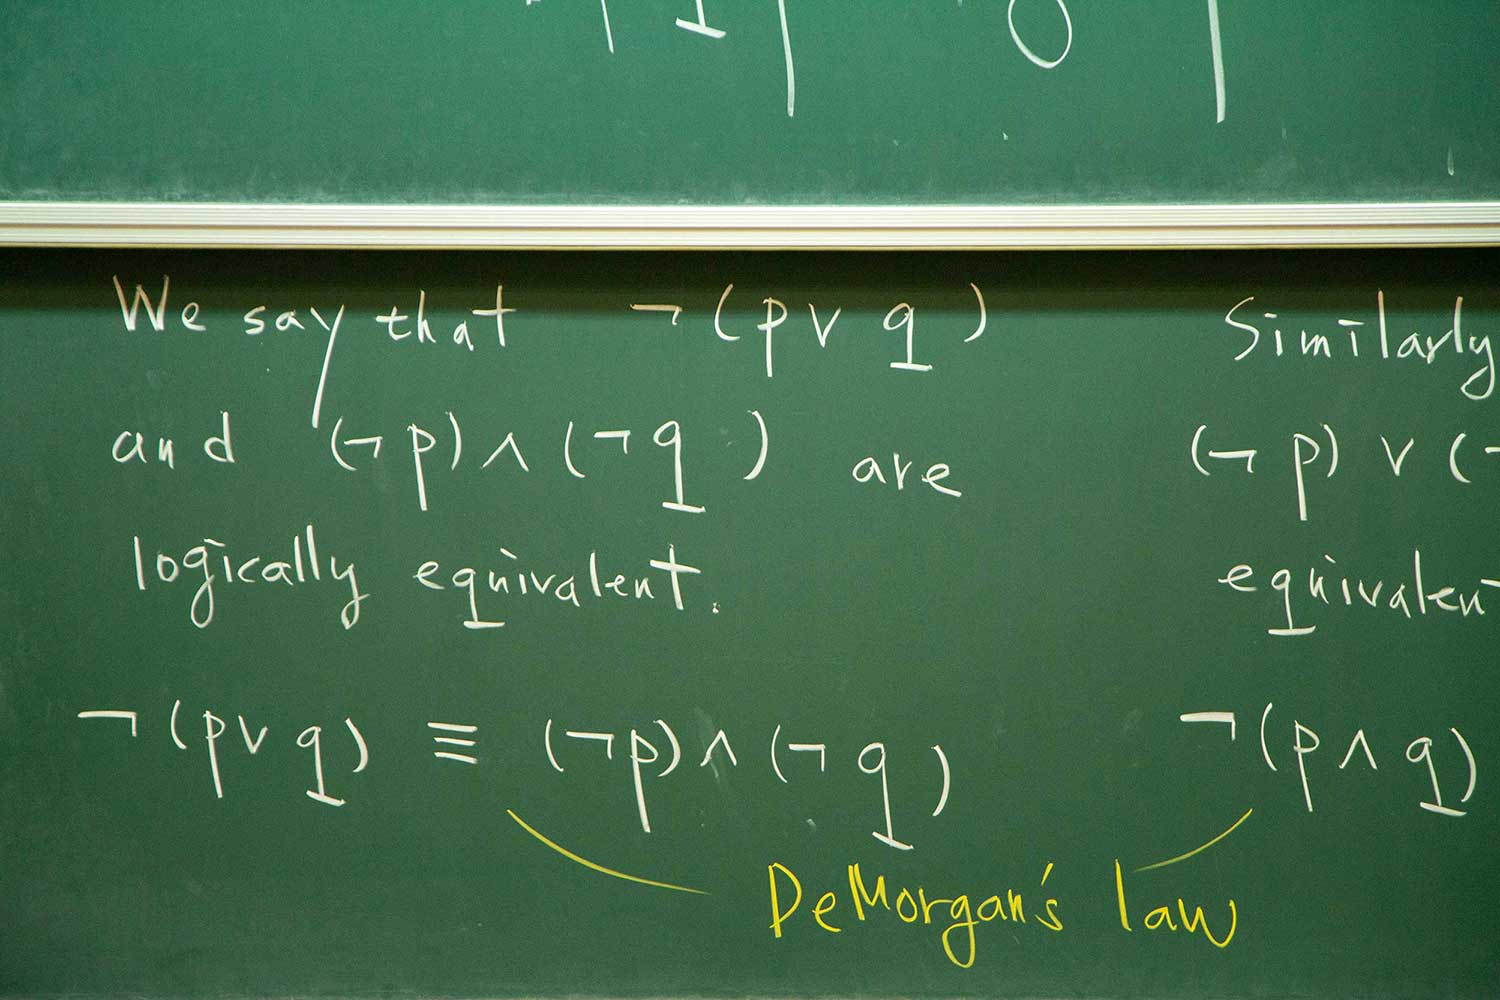 We say that ¬(p∨q)
and (¬p)∧(¬q) are
logically equivalent.
¬(p∨q) ≡ (¬p)∧(¬q)
Similarly
(¬p)∨(¬
equivalent
¬(p∧q)
DeMorgan's law